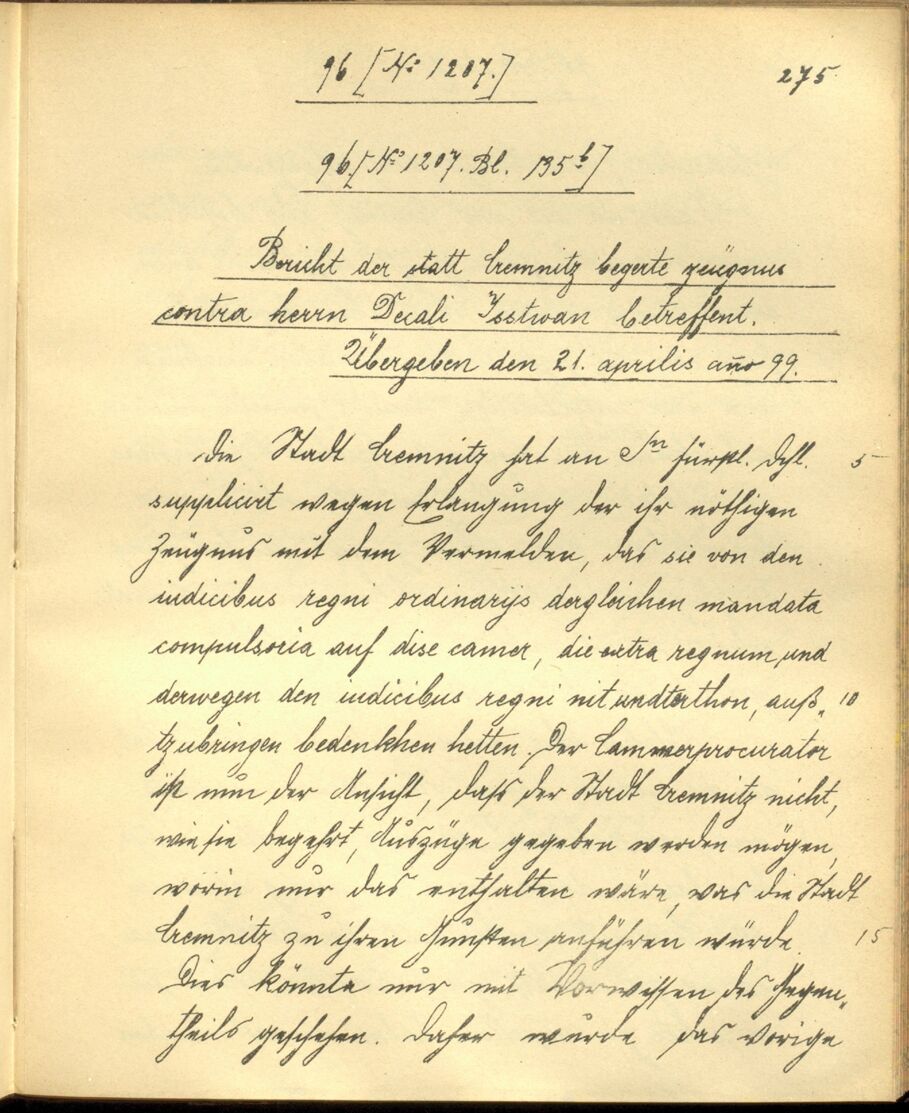 96 [Nº 1207.]
275
96.[Nº 1207. Bl. 135b]
Bericht der statt Cremnitz begerte zeügnus
contra herrn Decali Isstwan betreffent.
Übergeben den 21. aprilis año 99.
Die Stadt Cremnitz hat an Sn fürstl. Dchl. 5
supplicirt wegen Erlangung der ihr nöthigen
Zeügnus mit dem Vermelden, das sie von den
iudicibus regni ordinarijs dergleichen mandata
compulsoria auf dise camer, die extra regnum und
derwegen den iudicibus regni nit undterthon, auß„ 10
tzubringen bedenkhen hetten. Der Cammerprocurator
ist nun der Ansicht, daß der Stadt Cremnitz nicht,
wie sie begehrt, Auszüge gegeben werden mögen,
worin nur das enthalten wäre, was die Stadt
Cremnitz zu ihren Gunsten anführen würde. 15
Dies könnte nur mit Vorwissen des Gegen„
theils geschehen. Daher wurde das vorige